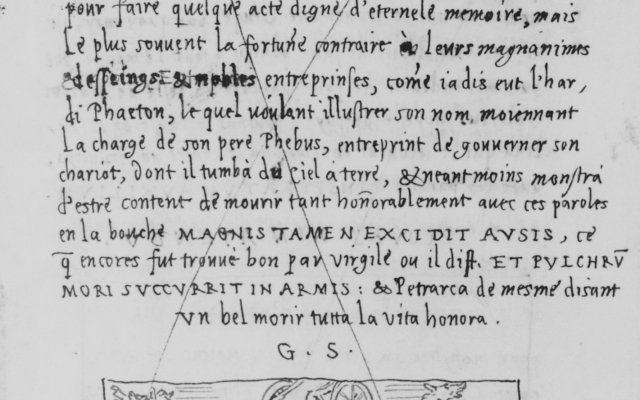 pour faire quelque acte digne d'eternele memoire, mais
Le plus souvent la fortune contraire à leurs magnanimes
& desseings & nobles entreprinses, comē iadis eut l'har,
di Phaeton, le quel voulant illustrer son nom, moiennant
La charge de son pere Phebus, entreprint de gouverner son
chariot, dont il tumba du Ciel a terre, & neant moins monstra
d'estre content de mourir tant hoñorablement avec ces paroles
en la bouche MAGNIS TAMEN EXCIDIT AVSIS, ce
q̄ encores fut trouvé bon par virgile ou il dist. ET PVLCHRV̄
MORI SVCCVRRIT IN ARMIS : & Petrarca de mesme disant
vn bel morir tutta la vita honora.
G. S.